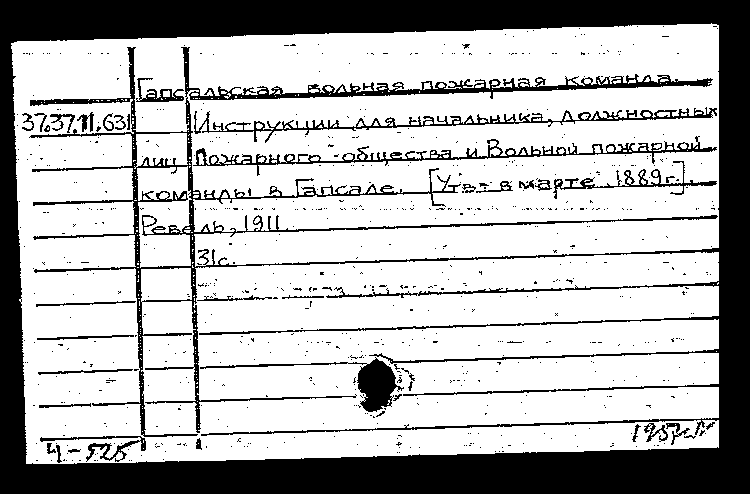 Гапсальская вольная пожарная команда.
37.37.11.631 Инструкции для начальника, должностных
лиц Пожарного общества и Вольной пожарной
команды в Гапсале. [Утв. в марте 1889г.].
Ревель, 1911.
31с.
Ч-525